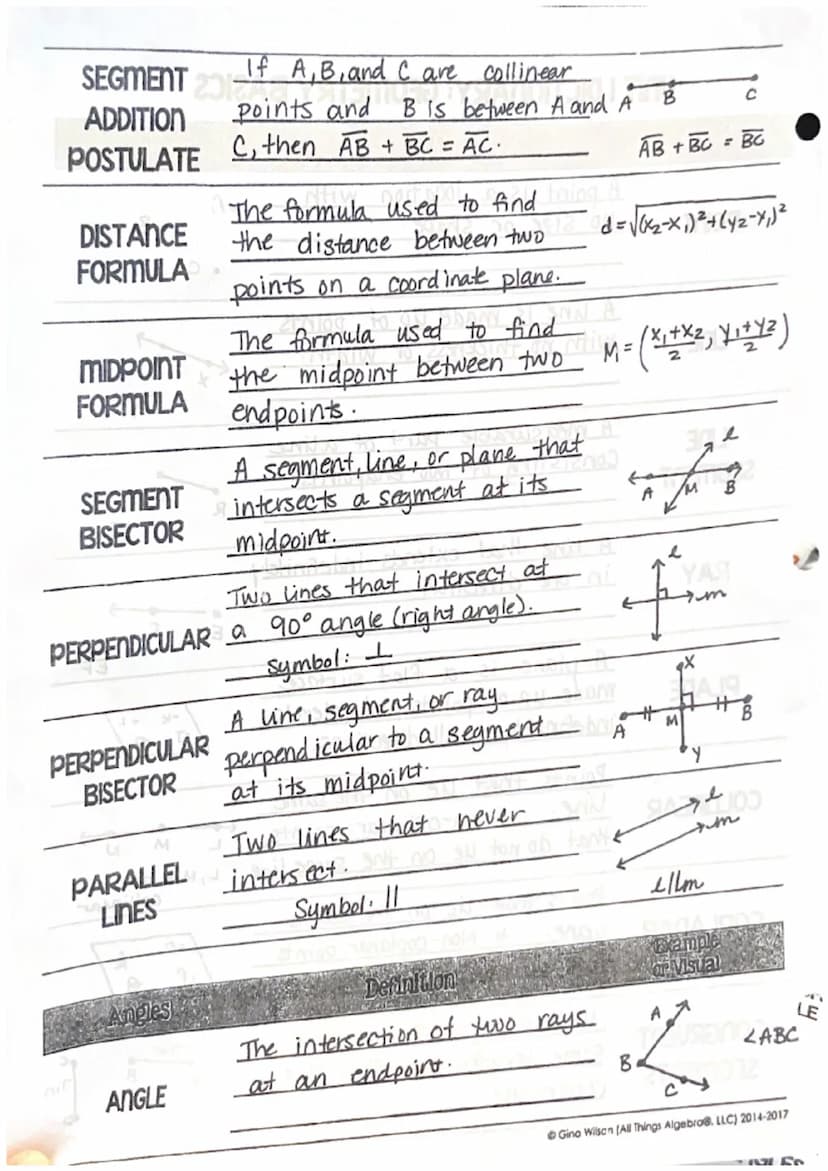 SEGMENT ADDITION POSTULATE
If A, B, and C are collinear
points and B is between A and
C, then A̅B̅ + B̅C̅ = A̅C̅.
A B C
A̅B̅ + B̅C̅ = B̅C̅
DISTANCE FORMULA
The formula used to find
the distance between two
points on a coordinate plane.
d = √(x₂-x₁)²+(y₂-y₁)²
MIDPOINT FORMULA
The formula used to find
the midpoint between two
endpoints.
M = (x₁+x₂/2, y₁+y₂/2)
SEGMENT BISECTOR
A segment, line, or plane that
intersects a segment at its
midpoint.
l
A M B
PERPENDICULAR
Two lines that intersect at
a 90° angle (right angle).
symbol: ⊥
l
m
PERPENDICULAR BISECTOR
A line, segment, or ray
perpendicular to a segment
at its midpoint.
X
A M B
Y
PARALLEL LINES
Two lines that never
intersect.
Symbol: ||
l
m
l||m
Angles
Definition
Example or Visual
ANGLE
The intersection of two rays
at an endpoint.
A
B
C
∠ABC
© Gina Wilson (All Things Algebra®, LLC) 2014-2017